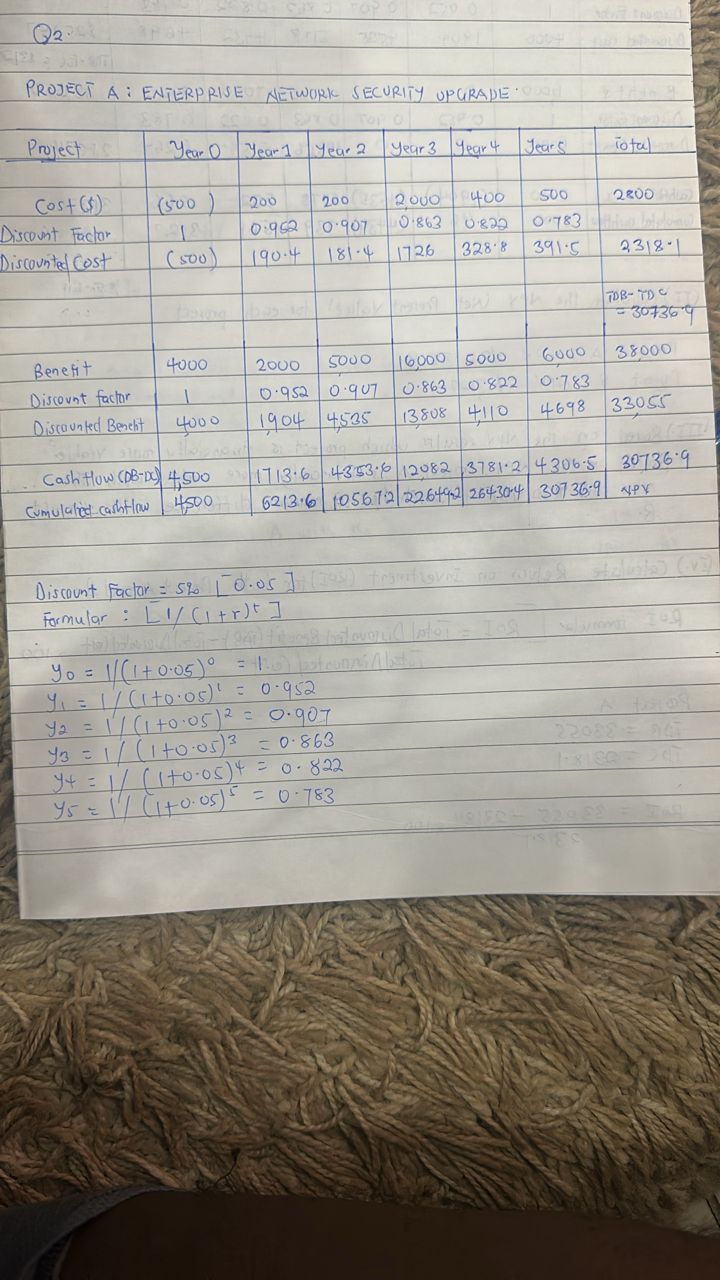 Q2.
PROJECT A : ENTERPRISE NETWORK SECURITY UPGRADE.
Project Year 0 Year 1 Year 2 Year 3 Year 4 Year 5 Total
Cost ($) (500) 200 200 2,000 400 500 2800
Discount Factor 1 0.952 0.907 0.863 0.822 0.783
Discounted Cost (500) 190.4 181.4 1726 328.8 391.5 2318.1
TDB - TDC
= 30736.9
Benefit 4000 2000 5000 16,000 5000 6,000 38,000
Discount factor 1 0.952 0.907 0.863 0.822 0.783
Discounted Benefit 4000 1,904 4,535 13,808 4,110 4698 33,055
Cashflow (DB-DC) 4,500 1713.6 4353.6 12,082 3781.2 4306.5 30736.9
Cumulated cashflow 4,500 6213.6 10567.2 22649.2 26430.4 30736.9 NPV
Discount Factor = 5% [0.05]
Formular : [1/(1+r)t]
Y0 = 1/(1+0.05)0 = 1.
Y1 = 1/(1+0.05)1 = 0.952
Y2 = 1/(1+0.05)2 = 0.907
Y3 = 1/(1+0.05)3 = 0.863
Y4 = 1/(1+0.05)4 = 0.822
Y5 = 1/(1+0.05)5 = 0.783